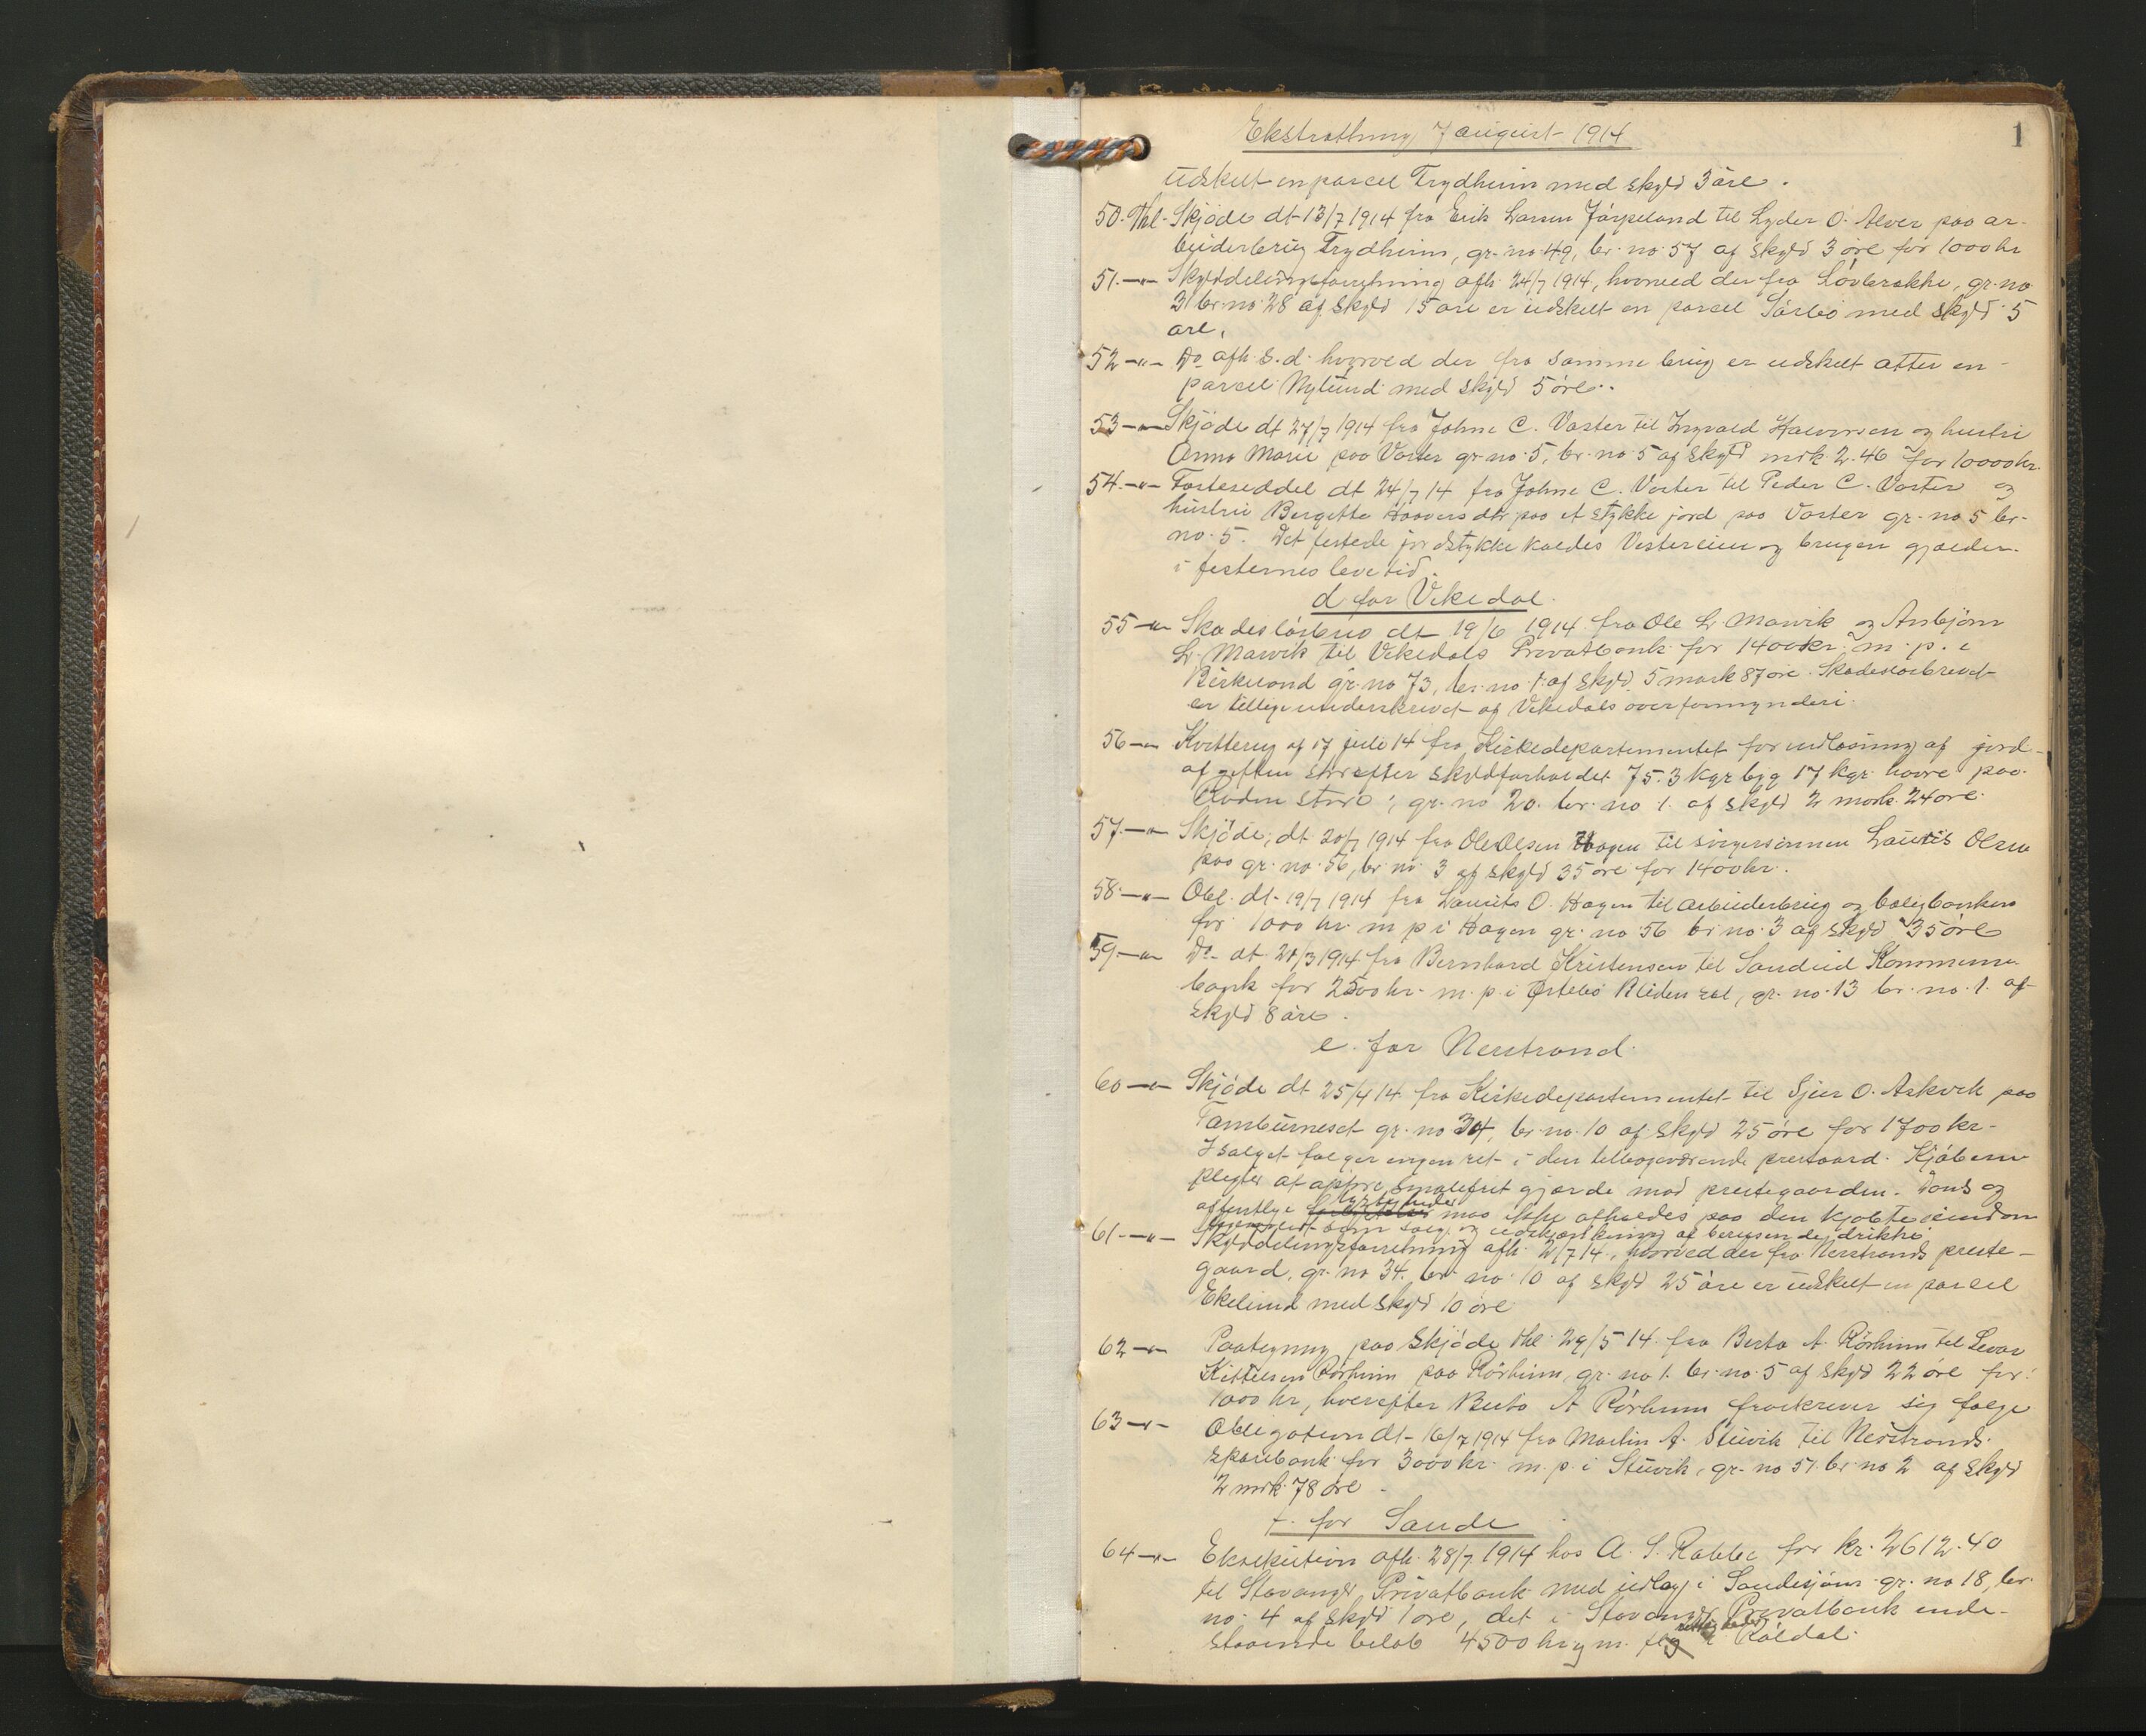 1
Ekstrathing 7 august 1914
Udskilt en parcel Frydheim med skyld 3 øre.
50. Thl. Skjøde dt 13/7 1914 fra Erik Larsen Jörpeland til Lyder O. Alver paa ar-
beiderbrug Frydheim, gr. no. 49, br. no. 57 af skyld 3 øre for 1000 kr
51. -"- Skylddelingsforretning afh. 24/7 1914, hvorved der fra Løvbrække, gr. no
31 br. no 28 af skyld 15 øre er udskilt en parcel Sørbø med skyld 5
øre.
52 -"- Do afh. s.d. hvorved der fra samme brug er udskilt atter en
parcel Nylund med skyld 5 øre.
53 -"- Skjøde dt 27/7 1914 fra Johne C. Vaster til Ingvald Halvorsen og hustru
Anna Marie paa Vaster gr. no. 5, br. no. 5 af skyld mrk. 2.46 for 10000 kr.
54. -"- Festeseddel dt 24/7 14 fra Johne C. Vaster til Peder C. Vaster og
hustru Bergitte Haaversdtr paa et stykke jord paa Vaster gr. no 5 br.
no. 5. Det festede jordstykke kaldes Vestereim og brugen gjælder
i festernes levetid.
d for Vikedal.
55 -"- Skadesløsbrev dt 19/6 1914 fra Ole L. Marvik og Asbjørn
L. Marvik til Vikedals Privatbank for 1400 kr. m. p. i
Birkeland gr. no 73, br. no 1. af skyld 5 mark 87 øre. Skadesløsbrevet
er tillige underskrevet af Vikedals overformynderi.
56 -"- Kvittering af 17 juli 14 fra Kirkedepartementet for indløsning af jord-
afgiften efter skyldforholdet 75.3 kgr byg 17 kgr. havre paa
store, gr. no 20. br. no 1. af skyld 2 mark. 24 øre.
57. -"- Skjøde, dt. 20/7 1914 fra Ole Olsen Hagen til svigersønnen Laurits Olsen
paa gr. no. 56, br. no. 3 af skyld 35 øre for 1400 kr.
58. -"- Obl. dt. 19/7 1914 fra Laurits O. Hagen til arbeiderbrug og boligbanken
for 1000 kr. m p i Hagen gr. no 56 br no. 3 af skyld 35 øre
59. -"- Do dt 20/3 1914 fra Bernhard Kristensen til Sandeid Kommune-
bank for 2500 kr. m. p. i Ørtebø gr. no. 13 br. no. 1. af
skyld 8 øre.
e. for Nerstrand.
60 -"- Skjøde dt 25/4 14 fra Kirkedepartementet til Sjur O. Askvik paa
Tamburneset gr. no 34, br. no. 10 af skyld 25 øre for 1700 kr.
I salget følger ingen ret i den tilbageværende prestgaard. Kjøberen
pligter at opføre smalefrit gjærde mod prestegaarden. Dans og
offentlige lystigheder maa ikke afholdes paa den kjøbte eiendom
som salg og udskjænkning af berusende drikke
61. -"- Skylddelingsforretning afh. 2/7 14, hvorved der fra Nerstrands preste-
gaard, gr. no 34. br. no. 10 af skyld 25 øre er udskilt en parcel
Ekelund med skyld 10 øre
62 -"- Paategning paa Skjøde thl. 29/5 14 fra Berta A. Rørheim til Sevar
Kittelsen Rørheim paa Rørheim, gr. no 1. br. no. 5 af skyld 22 øre for
1000 kr, hvorefter Berta A Rørheim fraskriver sig følge
63 -"- Obligation dt 16/7 1914 fra Martin A. Stuvik til Nerstrands
sparebank for 3000 kr. m. p. i Stuvik, gr. no 51. br no 2 af skyld
2 mrk. 78 øre.
f. for Saude
64 -"- Eksekution afh. 28/7 1914 hos A. S. Rabbe for kr. 2612.40
til Stavanger Privatbank med udlæg i Saudesjøen gr. no 18, br.
no. 4 af skyld 1 øre, det i Stavanger Privatbank inde-
staaende beløb 4500 kr og m. rettigheder i Røldal.